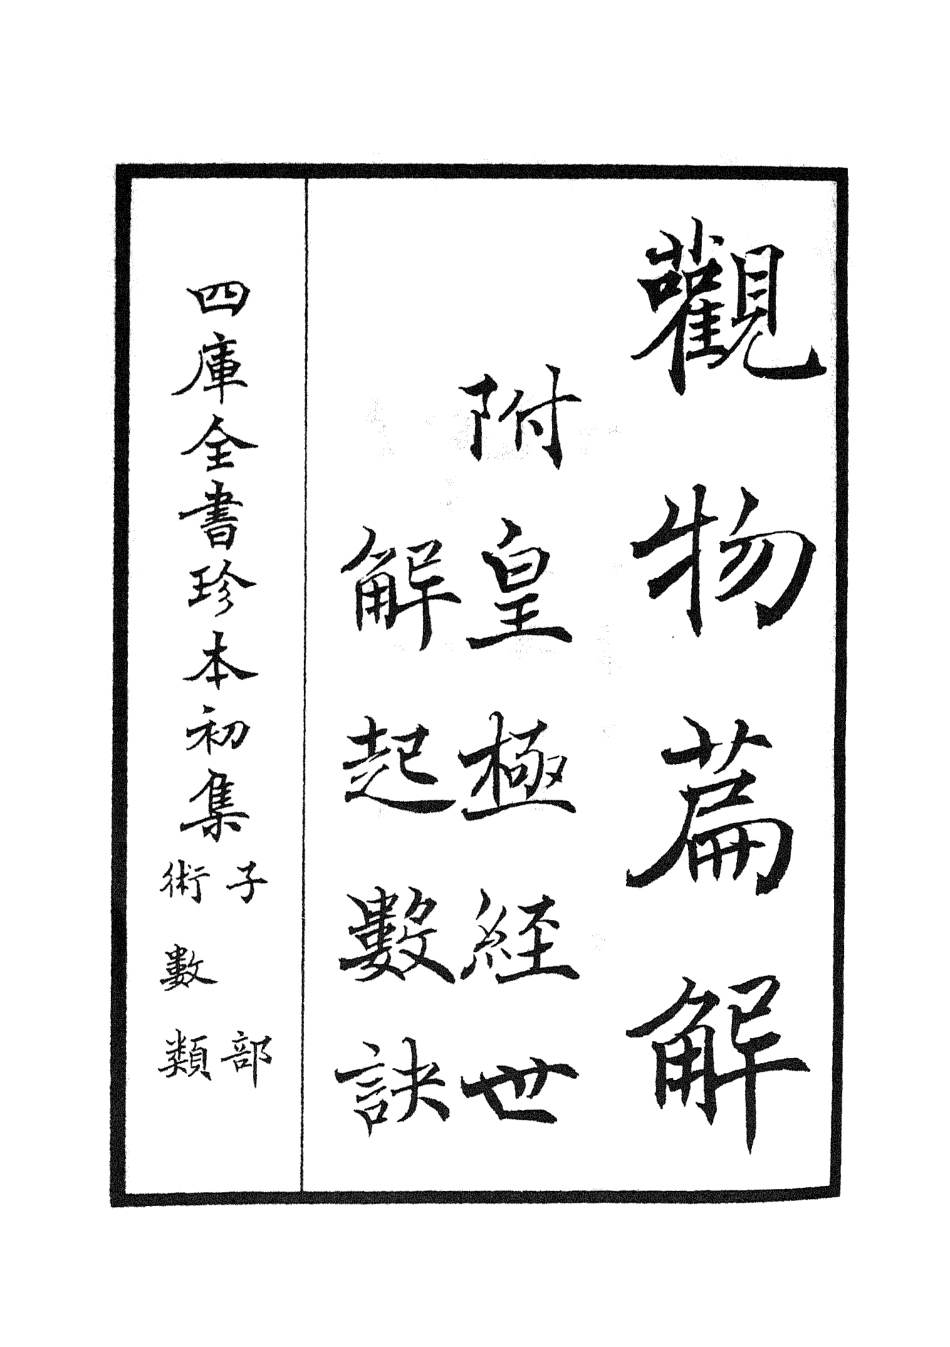 觀物萹解
附皇極經世
解起數訣
四庫全書珍本初集
子部
術數類